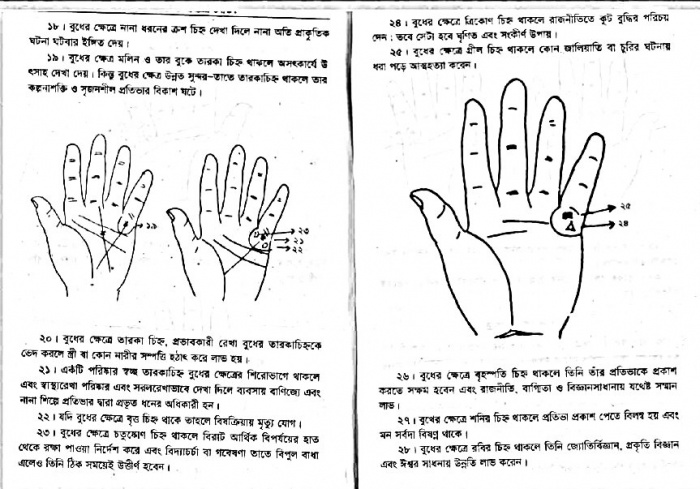 ১৮। বুধের ক্ষেত্রে নানা ধরনের ক্রশ চিহ্ন দেখা দিলে নানা অতি প্রাকৃতিক
ঘটনা ঘটবার ইঙ্গিত দেয়।
১৯। বুধের ক্ষেত্র মলিন ও তার বুকে তারকা চিহ্ন থাকলে অসৎকার্যে উ
ৎসাহ দেখা দেয়। কিন্তু বুধের ক্ষেত্র উন্নত সুন্দর–তাতে তারকাচিহ্ন থাকলে তার
কল্পনাশক্তি ও সৃজনশীল প্রতিভার বিকাশ ঘটে।
১৯
২৩
২১
২২
২০। বুধের ক্ষেত্রে তারকা চিহ্ন, প্রভাবকারী রেখা বুধের তারকাচিহ্নকে
ভেদ করলে স্ত্রী বা কোন নারীর সম্পত্তি হঠাৎ করে লাভ হয়।
২১। একটি পরিষ্কার স্বচ্ছ তারকাচিহ্ন বুধের ক্ষেত্রের শিরোভাগে থাকলে
এবং স্বাস্থ্যরেখা পরিষ্কার এবং সরলরেখাভাবে দেখা দিলে ব্যবসায় বাণিজ্যে এবং
নানা শিল্পে প্রতিভার দ্বারা প্রভূত ধনের অধিকারী হন।
২২। যদি বুধের ক্ষেত্রে বৃত্ত চিহ্ন থাকে তাহলে বিষক্রিয়ায় মৃত্যু যোগ।
২৩। বুধের ক্ষেত্রে চতুষ্কোণ চিহ্ন থাকলে বিরাট আর্থিক বিপর্যয়ের হাত
থেকে রক্ষা পাওয়া নির্দেশ করে এবং বিদ্যাচর্চা বা গবেষণা তাতে বিপুল বাধা
এলেও তিনি ঠিক সময়েই উত্তীর্ণ হবেন।
২৪। বুধের ক্ষেত্রে ত্রিকোণ চিহ্ন থাকলে রাজনীতিতে কূট বুদ্ধির পরিচয়
দেন; তবে সেটা হবে ঘৃণিত এবং সংকীর্ণ উপায়।
২৫। বুধের ক্ষেত্রে গ্রীল চিহ্ন থাকলে কোন জালিয়াতি বা চুরির ঘটনায়
ধরা পড়ে আত্মহত্যা করেন।
২৫
২৪
২৬। বুধের ক্ষেত্রে বৃহস্পতি চিহ্ন থাকলে তিনি তাঁর প্রতিভাকে প্রকাশ
করতে সক্ষম হবেন এবং রাজনীতি, বাগ্মিতা ও বিজ্ঞানসাধনায় যথেষ্ট সম্মান
লাভ।
২৭। বুধের ক্ষেত্রে শনির চিহ্ন থাকলে প্রতিভা প্রকাশ পেতে বিলম্ব হয় এবং
মন সর্বদা বিষণ্ণ থাকে।
২৮। বুধের ক্ষেত্রে রবির চিহ্ন থাকলে তিনি জ্যোতির্বিজ্ঞান, প্রকৃতি বিজ্ঞান
এবং ঈশ্বর সাধনায় উন্নতি লাভ করেন।